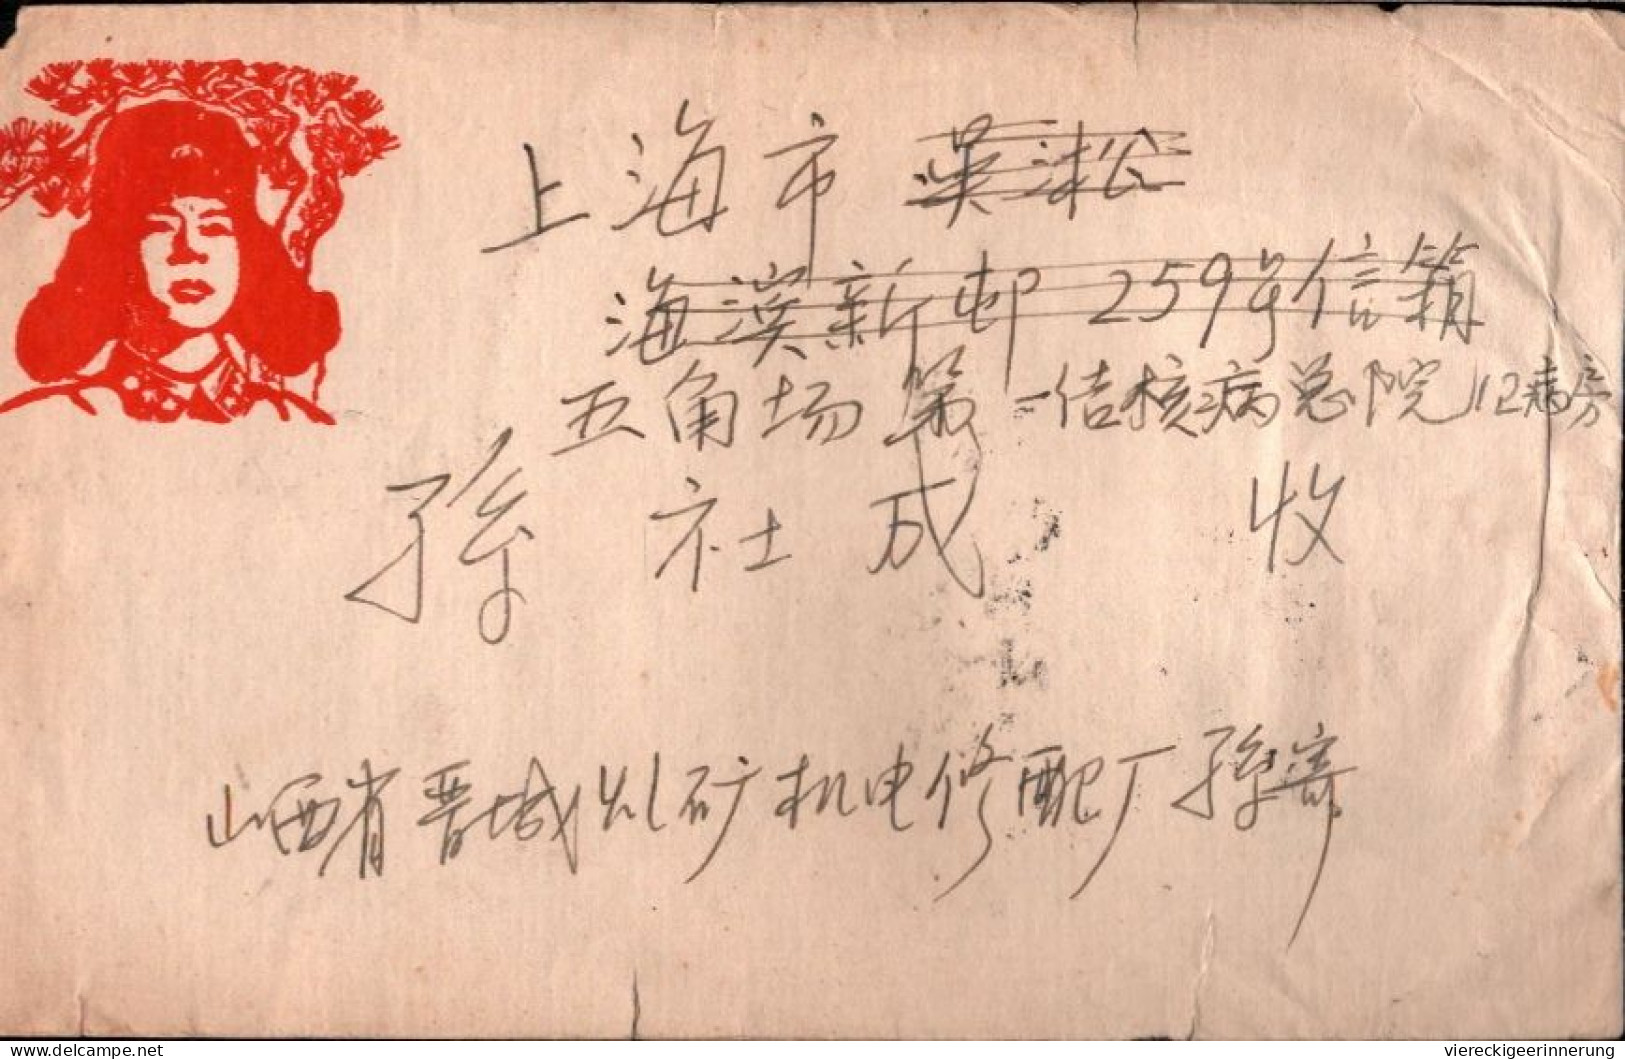 上海市吴淞
海滨新邨259号信箱
五角场第一结核病总院12病房
孙社成 收
山西省晋城 矿机电修配厂孙寄
www.delcampe.net
viereckigeerinnerung